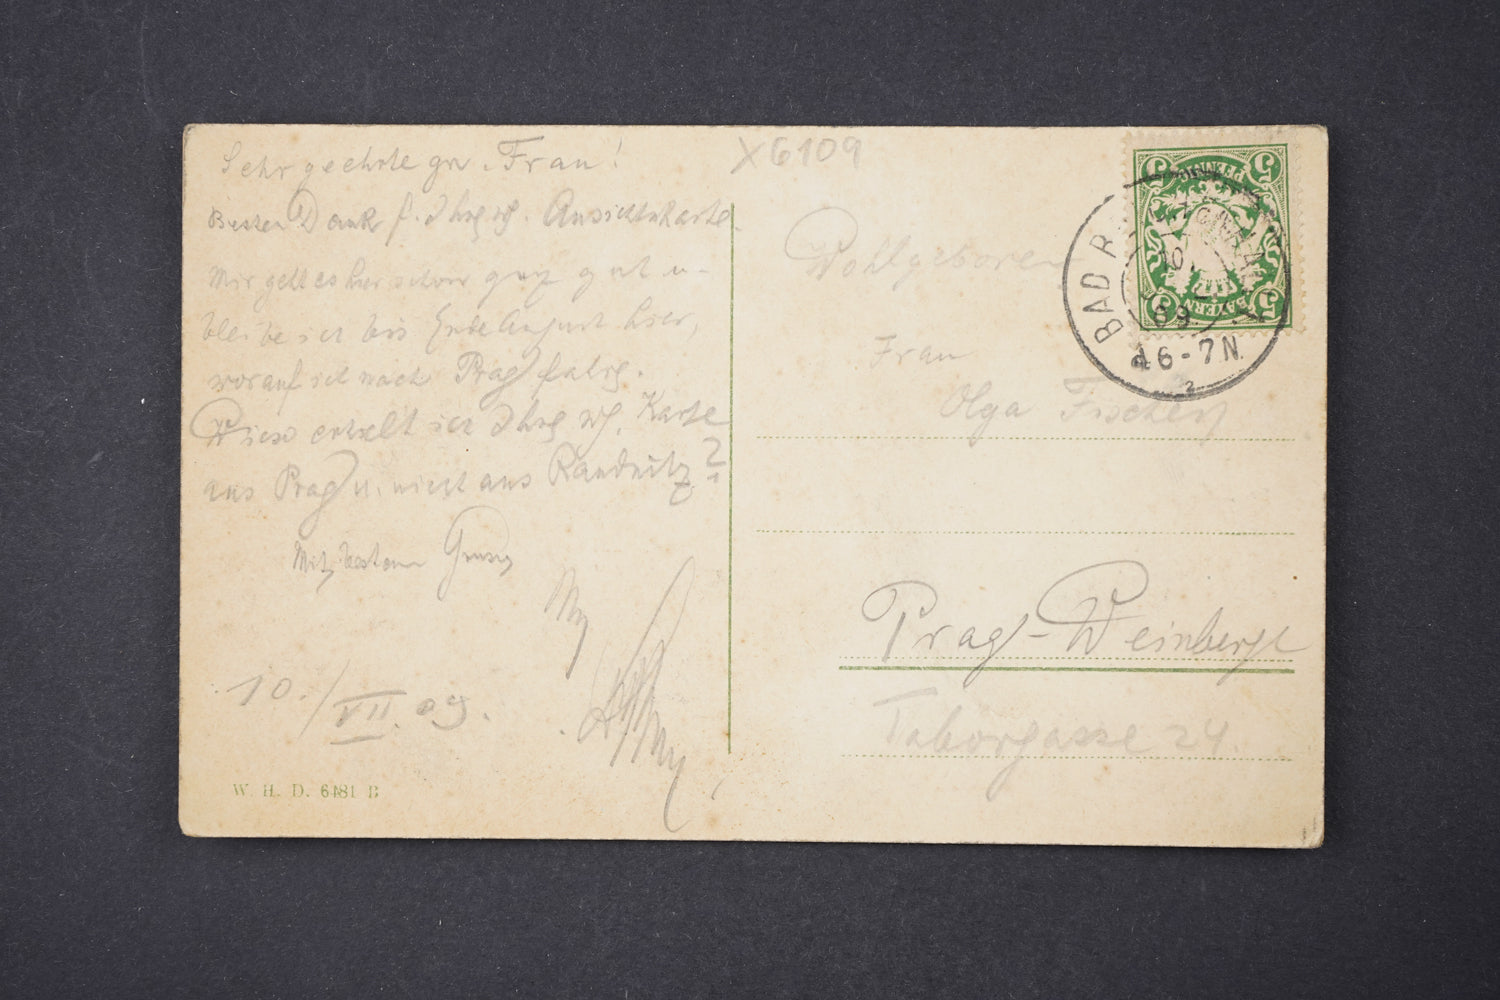 X6109
Sehr geehrte gn. Frau!
Besten Dank f. Ihre w. Ansichtskarte.
Mir geht es hier schon ganz gut u.
bleibe ich bis Ende August hier,
worauf ich nach Prag fahre.
Wieso erhielt ich Ihre w. Karte
aus Prag u. nicht aus Raudnitz?
Mit besten
10./VII.09.
W. H. D. 6481 B
Wohlgeboren
Frau
Olga Fischer
Prag-Weinberge
Taborgasse 24
5 5
PFENNIG
BAYERN
5 5
BAD
10
09.
6-7N.
2